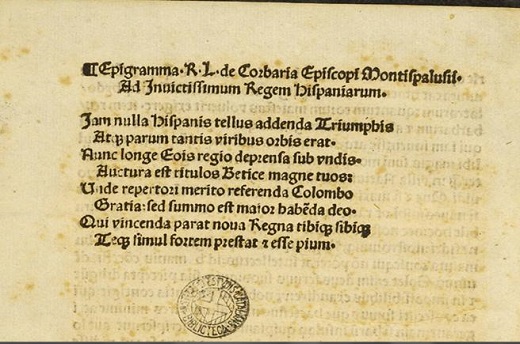 ¶Epigramma·R·L·de Corbaria Episcopi Montispalusii·
Ad Inuictissimum Regem hispaniarum·
Jam nulla hispanis tellus addenda Triumphis
Atqꝫ parum tantis viribus orbis erat·
Nunc longe Eois regio deprensa sub vndis·
Auctura est titulos Betice magne tuos:
Unde repertori merito referenda Colombo
Gratia: sed summo est maior habẽda deo·
Qui vincenda parat noua Regna tibiqꝫ sibiqꝫ
Teqꝫ simul fortem prestat ⁊ esse pium·
BIBLIOTECA